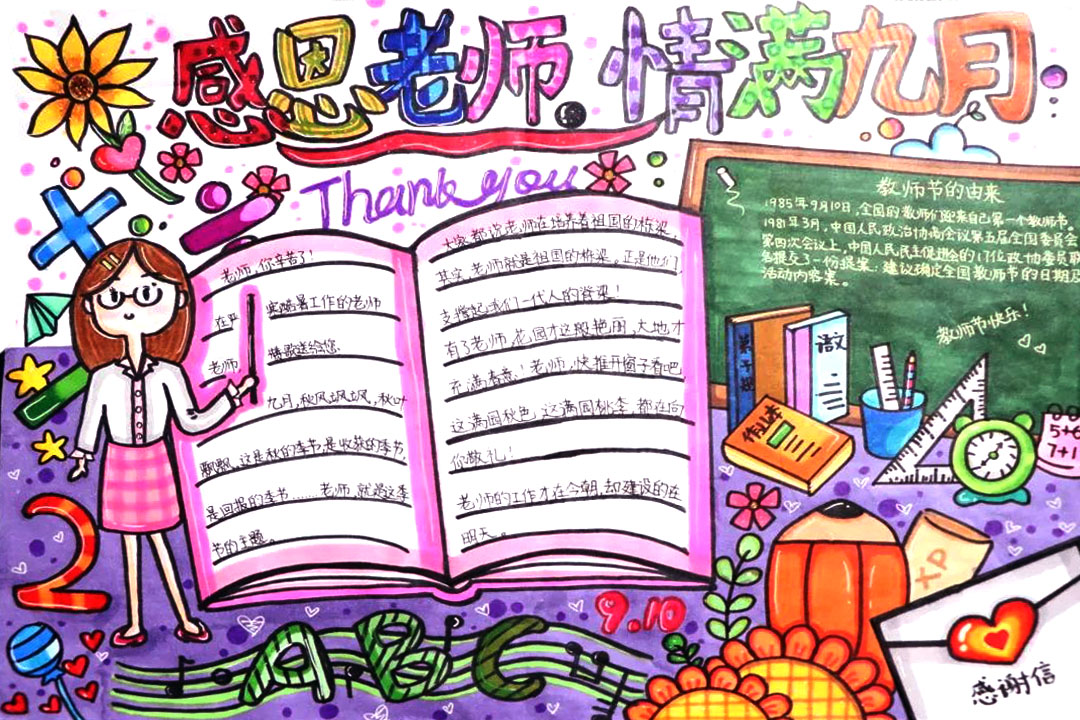 感恩老师。情满九月
Thank you
老师,你辛苦了!
在乎 暑工作的老师
老师 情歌送给您.
九月,秋风飒飒,秋叶
飘飘,这是秋的季节,是收获的季节,
是回报的季节……老师,就是这季
节的主题。
大家都说老师在培养着祖国的栋梁,
其实,老师就是祖国的栋梁。正是他们,
支撑起我们一代人的脊梁!
有了老师,花园才这般艳丽,大地才
充满春意!老师,快推开窗子看吧,
这满园秋色,这满园桃李,都在向
你敬礼!
老师的工作才在今朝,却建设的在
明天。
教师节的由来
1985年9月10日,全国的教师们迎来自己第一个教师节。
1981年3月,中国人民政治协商会议第五届全国委员会
第四次会议上,中国人民民主促进会的17位政协委员联
名提交了一份提案:建议确定全国教师节的日期及
活动内容案。
教师节快乐!
语文
作业本
5+6
7+1
2
9.10
ABC
XP
感谢信